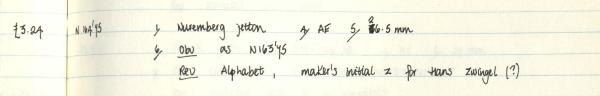 £3.24 N164'45 1, Nuremberg jetton 4, AE 5, 26.5 mm
6, Obv as N163'45
Rev Alphabet, maker's initial z for Hans Zwingel (?)